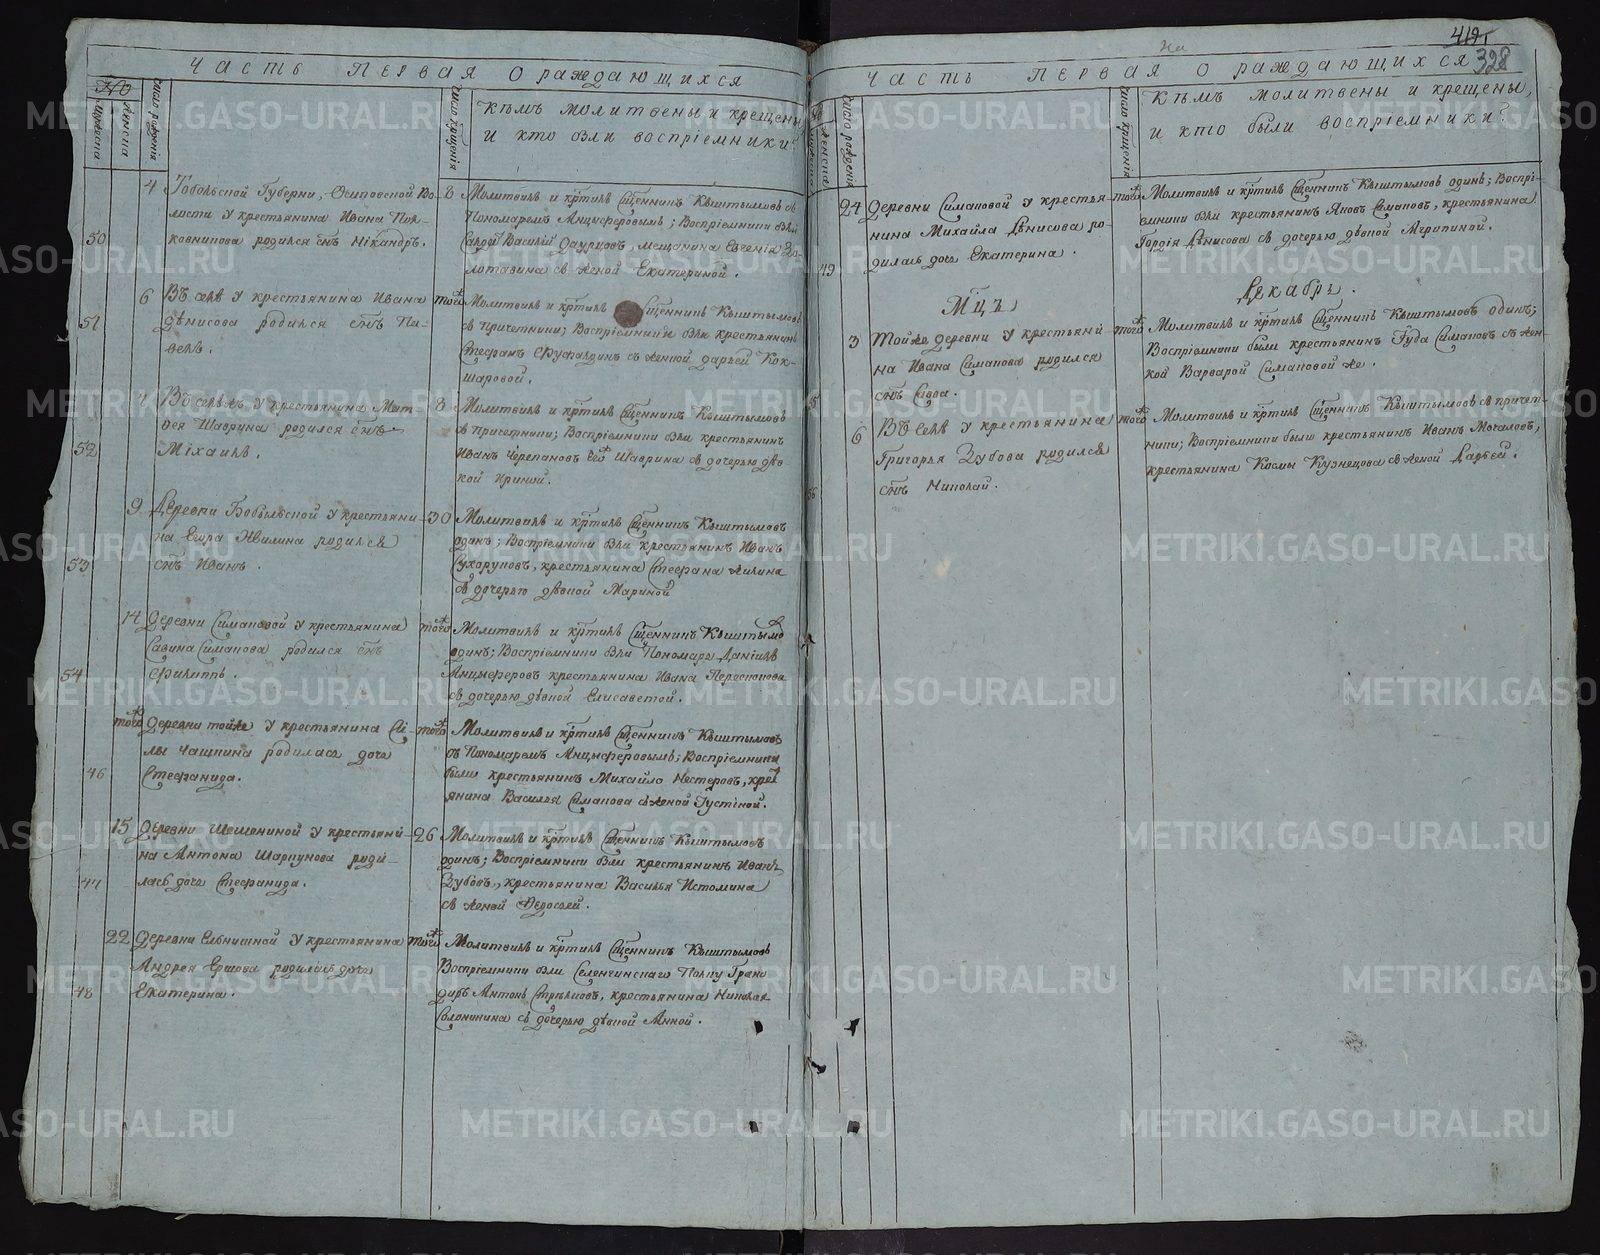 Часть Первая О раждающихся
Кѣмъ молитвены и крещены
и кто были воспріемники?
4 Тобольской Губерни, Осиповской Во-
лости у крестьянина Ивана Пол-
ковникова родился сн҃ъ Никандръ.
50
8 Молитвилъ и кр҃тилъ Сщ҃енникъ Кыштымовъ съ
Пономаремъ Анцыферовымъ; Воспріемники были
Василій мещанина Евгенія
съ женой Екатериной.
6 Въ селѣ у крестьянина Ивана
Дѣнисова родился сн҃ъ Па-
велъ.
51
того Молитвилъ и кр҃тилъ Сщ҃енникъ Кыштымовъ
съ Причетники; Воспріемники были крестьянинъ
Стефанъ съ женкой Дарьей Кок-
шаровой.
7 Въ селѣ жъ у крестьянина Мат-
вея Шаврина родился сн҃ъ
Михаилъ.
52
8 Молитвилъ и кр҃тилъ Сщ҃енникъ Кыштымовъ
съ Причетники; Воспріемники были крестьянинъ
Иванъ Черепановъ Шаврина съ дочерью дѣв-
кой Ириной.
9 Деревни Бобыльской у крестьяни-
на Егора Жилина родился
сн҃ъ Иванъ.
53
30 Молитвилъ и кр҃тилъ Сщ҃енникъ Кыштымовъ
одинъ; Воспріемники были крестьянинъ Иванъ
Сухоруковъ, крестьянина Стефана Жилина
съ дочерью дѣвкой Мариной
14 Деревни Симановой у крестьянина
Савина Симанова родился сн҃ъ
Филиппъ.
54
того Молитвилъ и кр҃тилъ Сщ҃енникъ Кыштымовъ
одинъ; Воспріемники были Пономарь Даніилъ
Анцыферовъ крестьянина Ивана
съ дочерью дѣвкой Елисаветой.
того Деревни тойже у крестьянина Си-
лы Чащина родилась дочь
Стефанида.
46
того Молитвилъ и кр҃тилъ Сщ҃енникъ Кыштымовъ
съ Пономаремъ Анцыферовымъ; Воспріемники
были крестьянинъ Михайло Нестеровъ, крест
янина Василья Симанова съ женой Густиной.
15 Деревни Шешениной у крестьяни-
на Антона Шарпунова роди-
лась дочь Стефанида.
47
26 Молитвилъ и кр҃тилъ Сщ҃енникъ Кыштымовъ
одинъ; Воспріемники были крестьянинъ Иванъ
Зубовъ, крестьянина Василья Истомина
съ женой Федосьей.
22 Деревни Ельнишной у крестьянина
Андрея Ершова родилась дочь
Екатерина.
48
того Молитвилъ и кр҃тилъ Сщ҃енникъ Кыштымовъ
Воспріемники были Селенгинскаго Полку Грена
диръ Антонъ Стрѣлковъ, крестьянина Николая
Солонинина съ дочерью дѣвкой Анной.
419
328
Часть Первая О раждающихся
Кѣмъ молитвены и крещены,
и кто были воспріемники?
24 Деревни Симановой у крестья-
нина Михайла Дѣнисова ро-
дилась дочь Екатерина.
49
того Молитвилъ и кр҃тилъ Сщ҃енникъ Кыштымовъ одинъ; Воспрі-
емники были крестьянинъ Яковъ Симановъ, крестьянина
Гордія Дѣнисова съ дочерью дѣвкой Мерипиной.
Мц҃ъ Декабрь.
3 Тойжъ деревни у крестьяни-
на Ивана Симанова родился
сн҃ъ Савва.
того Молитвилъ и кр҃тилъ Сщ҃енникъ Кыштымовъ одинъ;
Воспріемники были крестьянинъ Іуда Симановъ съ жен-
кой Варварой Симановой же.
6 Въ селѣ у крестьянина
Григорья Зубова родился
сн҃ъ Николай.
56
того Молитвилъ и кр҃тилъ Сщ҃енникъ Кыштымовъ съ причет-
ники; Воспріемники были крестьянинъ Иванъ Мочаловъ,
крестьянина Космы Кузнецова съ женой Дарьей.
METRIKI.GASO-URAL.RU